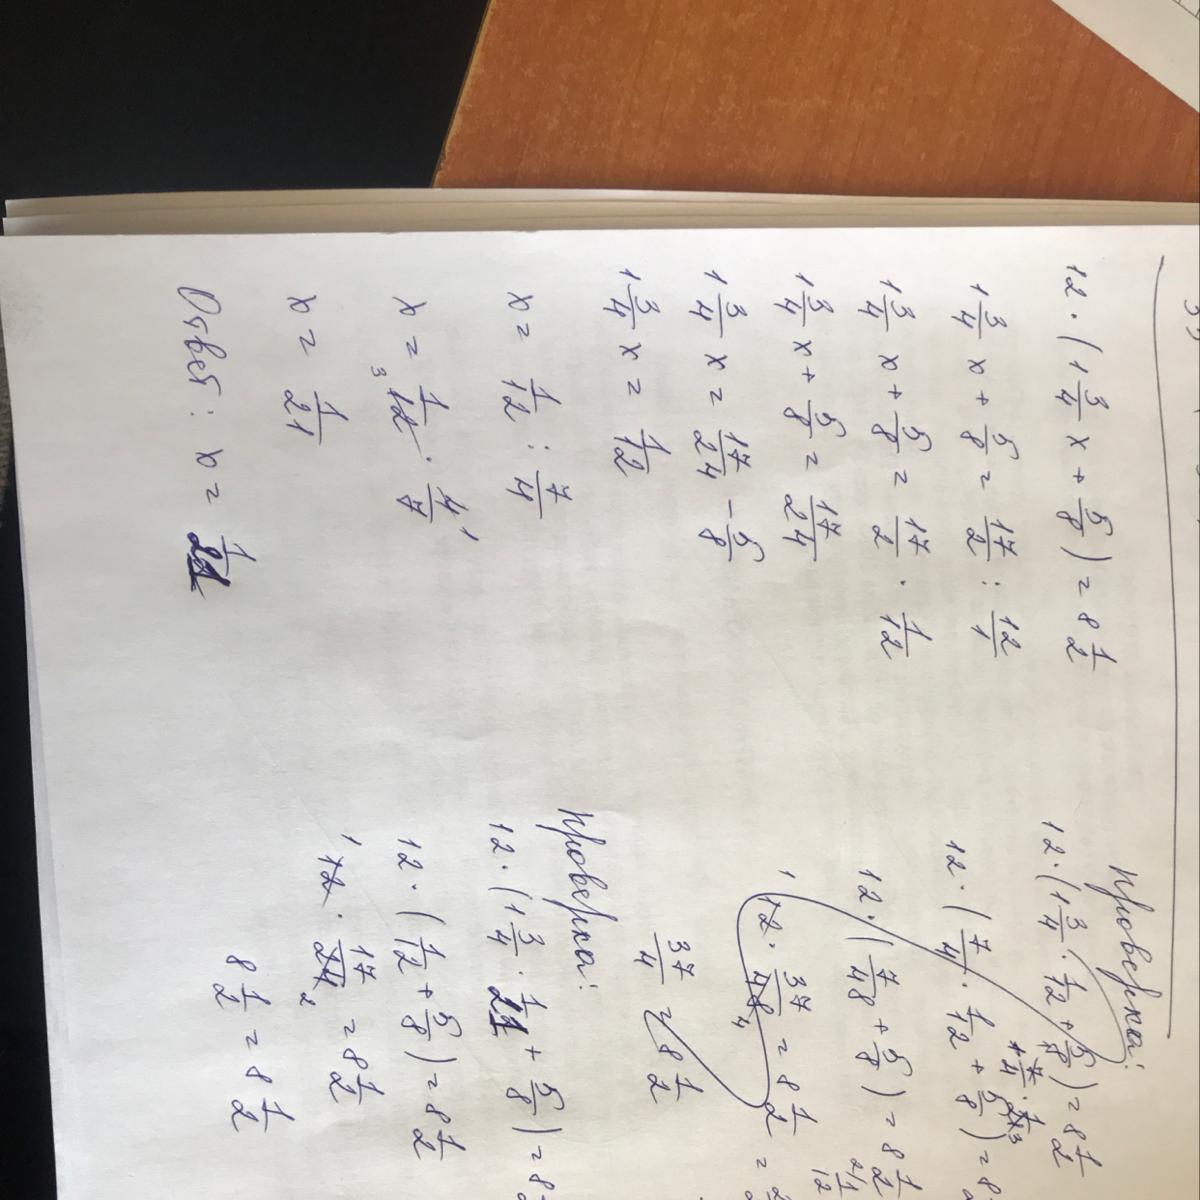 12 · (1 3/4 x + 5/8) = 8 1/2
1 3/4 x + 5/8 = 17/2 : 12/1
1 3/4 x + 5/8 = 17/2 · 1/12
1 3/4 x + 5/8 = 17/24
1 3/4 x = 17/24 - 5/8
1 3/4 x = 1/12
x = 1/12 : 7/4
x = 1/12 3 · 4/7 1
x = 1/21
Ответ: x = 1/21
Проверка:
12 · (1 3/4 · 1/12 + 5/8) = 8 1/2
12 · (7/4 · 1/12 + 5/8) = 8
12 · (7/48 + 5/8) = 8 1/2
1 12 · 37/48 4 = 8 1/2 =
37/4 = 8 1/2
Проверка:
12 · (1 3/4 · 1/21 + 5/8) = 8
12 · (1/12 + 5/8) = 8 1/2
1 12 · 17/24 2 = 8 1/2
8 1/2 = 8 1/2